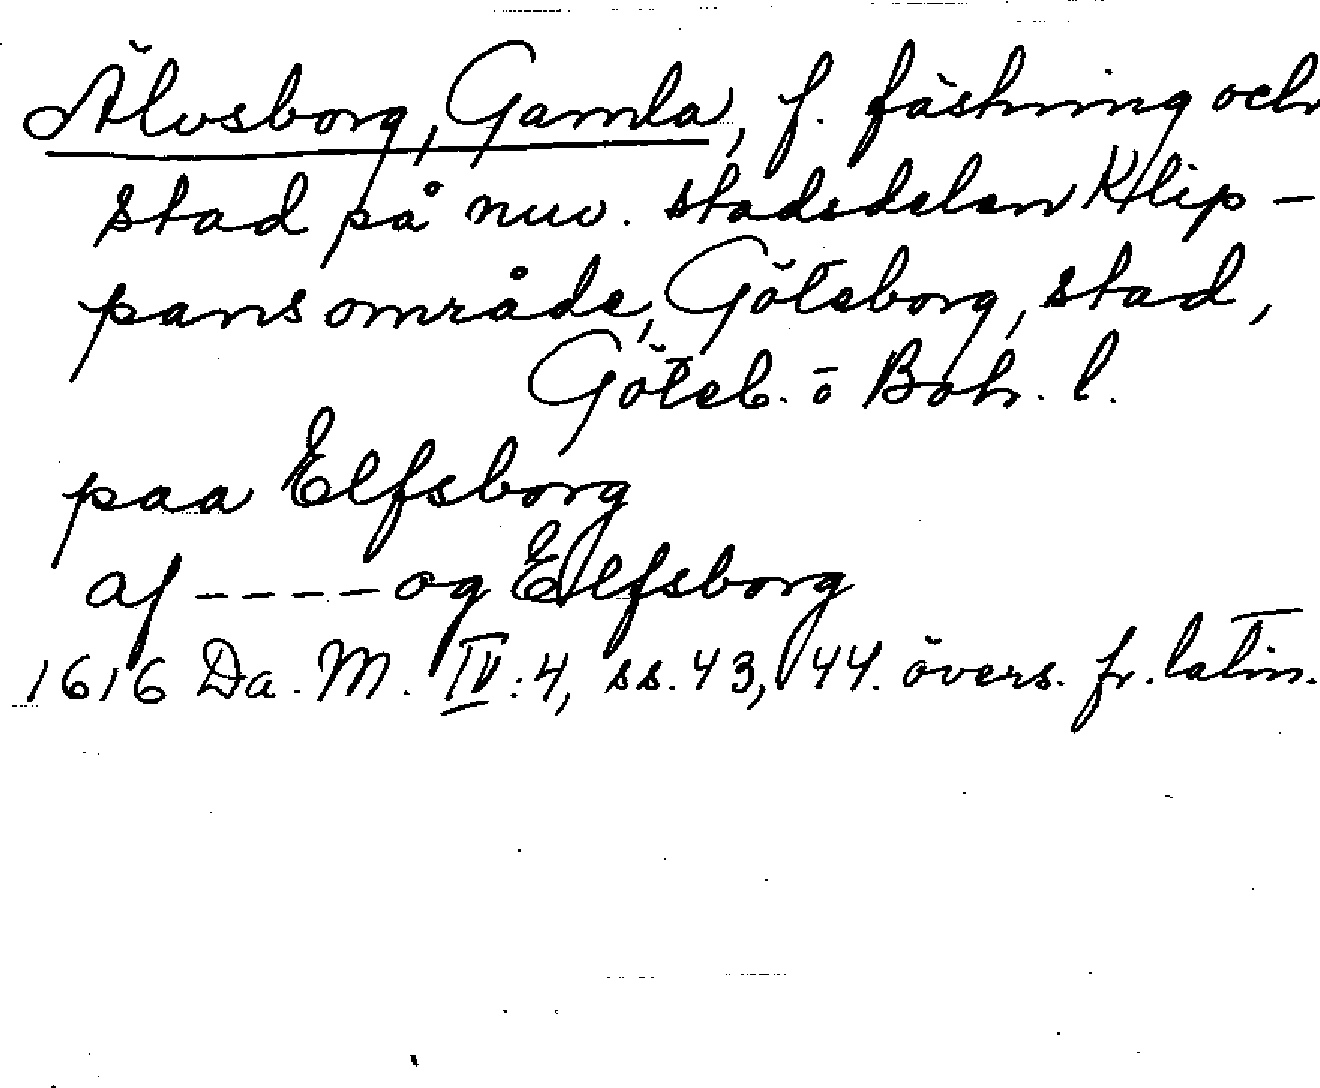 Älvsborg, Gamla, f. fästning och
stad på nuv. stadsdelen Klip-
pans område, Göteborg, stad,
Göteb. o Boh. l.
paa Elfsborg
af ---- og Elfsborg
1616 Da. M. IV:4, ss. 43, 44. övers. fr. latin.